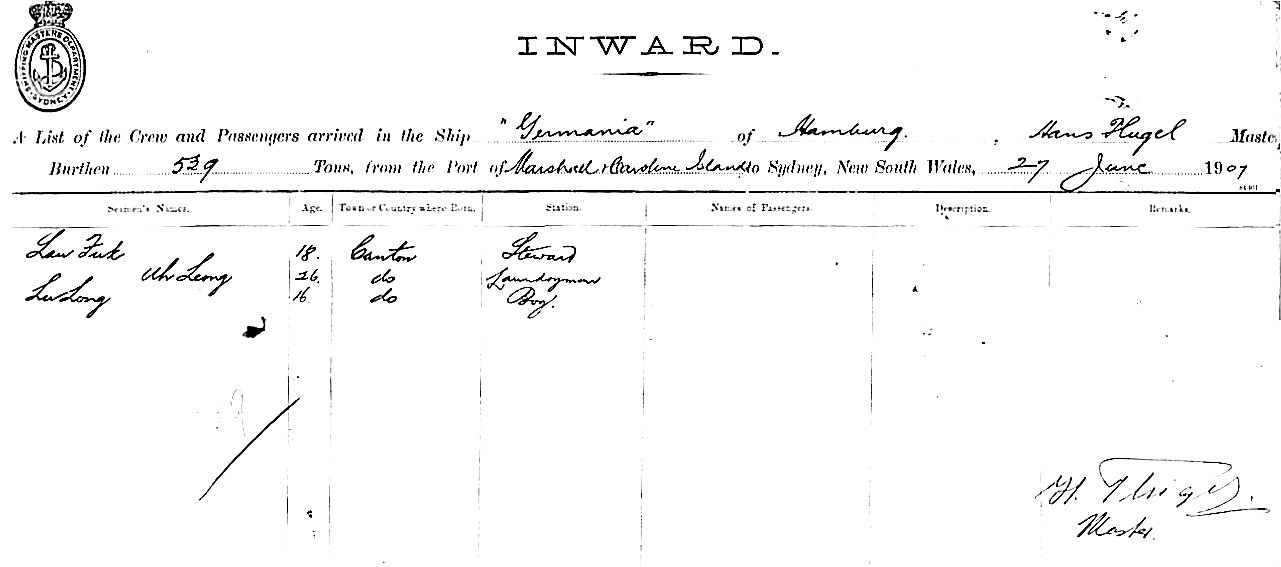 SHIPPING MASTERS DEPARTMENT SYDNEY
INWARD.
A List of the Crew and Passengers arrived in the Ship "Germania" of Hamburg. , Hans Flugel Maste
Burthen 539 Tons, from the Port of Marshall & Caroline Islands to Sydney, New South Wales, 27 June 1907
Seamen's Names. Age. Town or Country where Born. Station. Names of Passengers. Description. Remarks.
Lau Fuk 18. Canton Steward
Ah Leong 26. do Laundryman
Lu Long 16 do Boy.
H. Flügel.
Master.